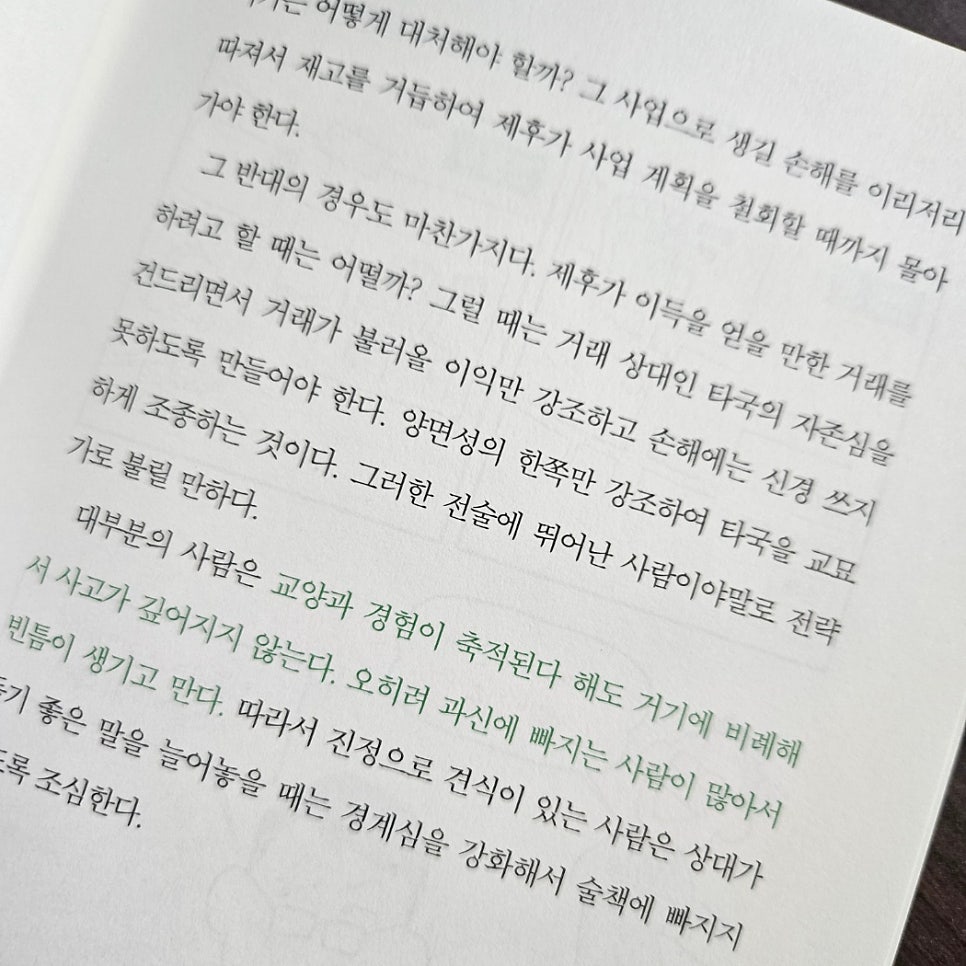 어떻게 대처해야 할까? 그 사업으로 생길 손해를 이리저리
따져서 재고를 거듭하여 제후가 사업 계획을 철회할 때까지 몰아
가야 한다.
그 반대의 경우도 마찬가지다. 제후가 이득을 얻을 만한 거래를
하려고 할 때는 어떨까? 그럴 때는 거래 상대인 타국의 자존심을
건드리면서 거래가 불러올 이익만 강조하고 손해에는 신경 쓰지
못하도록 만들어야 한다. 양면성의 한쪽만 강조하여 타국을 교묘
하게 조종하는 것이다. 그러한 전술에 뛰어난 사람이야말로 전략
가로 불릴 만하다.
대부분의 사람은 교양과 경험이 축적된다 해도 거기에 비례해
서 사고가 깊어지지 않는다. 오히려 과신에 빠지는 사람이 많아서
빈틈이 생기고 만다. 따라서 진정으로 견식이 있는 사람은 상대가
듣기 좋은 말을 늘어놓을 때는 경계심을 강화해서 술책에 빠지지
조심한다.